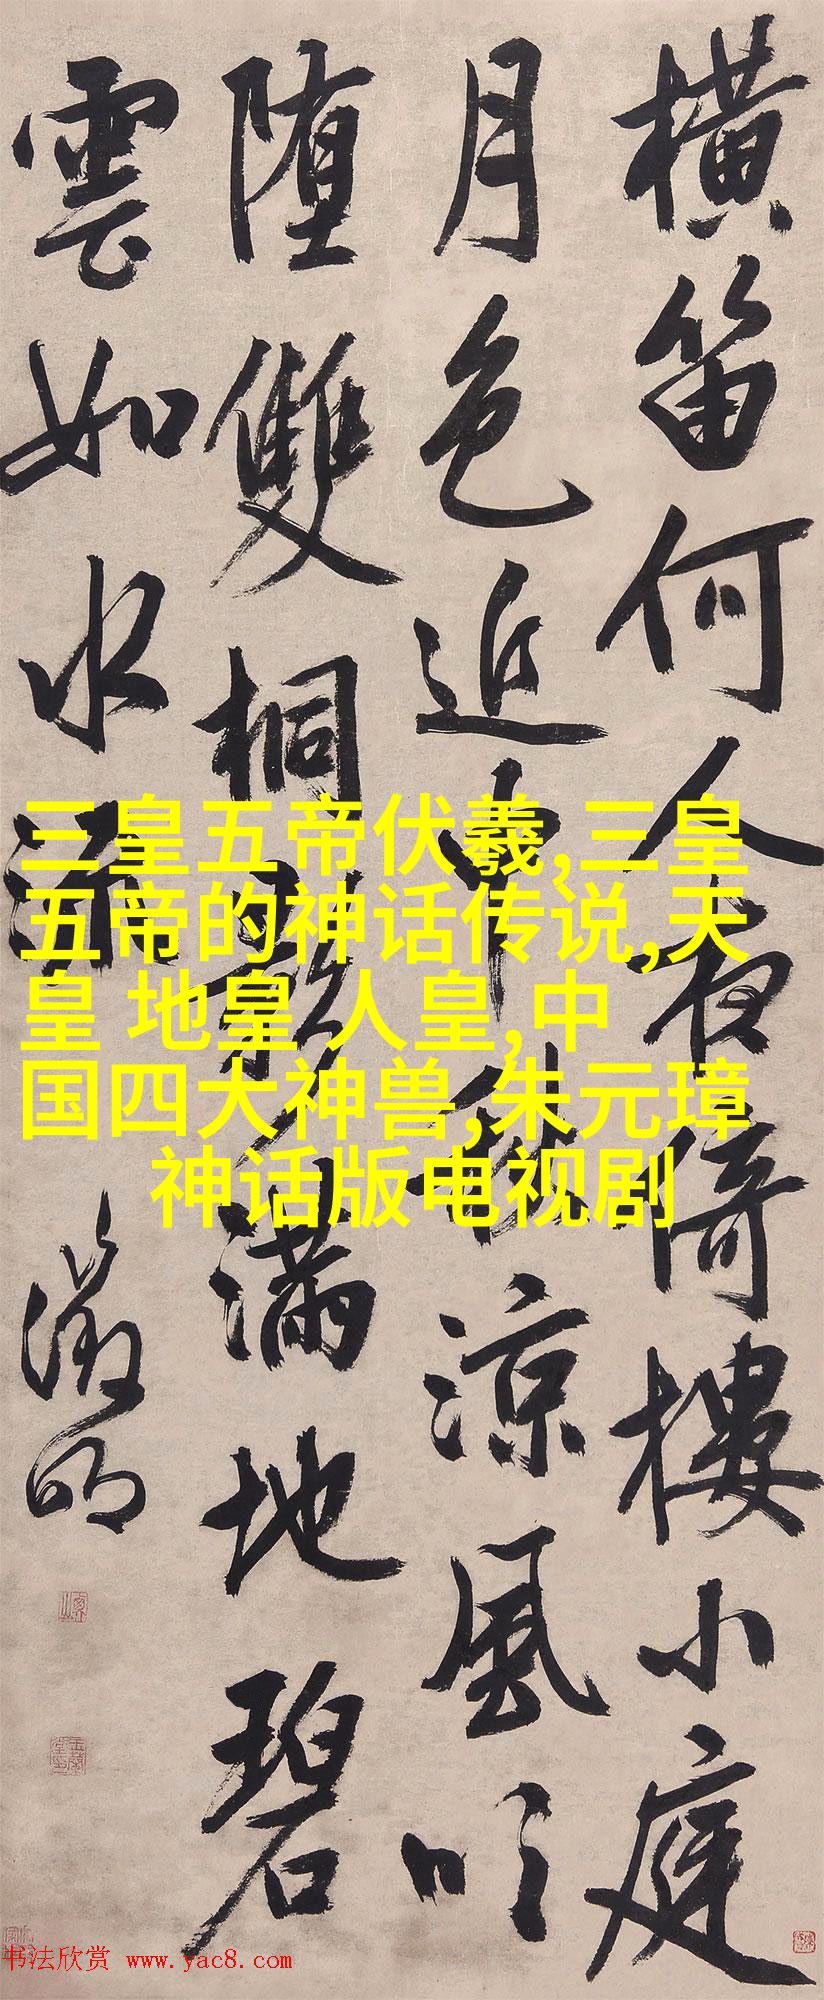 橫笛何人夜倚樓小庭
月色近中秋涼風吹
堕雙桐影滿地碧
雲如水流
徵明
三皇五帝伏羲,三皇
五帝的神话传说,天
皇 地皇 人皇,中
国四大神兽,朱元璋
神话版电视剧
书法欣赏 www.yac8.com